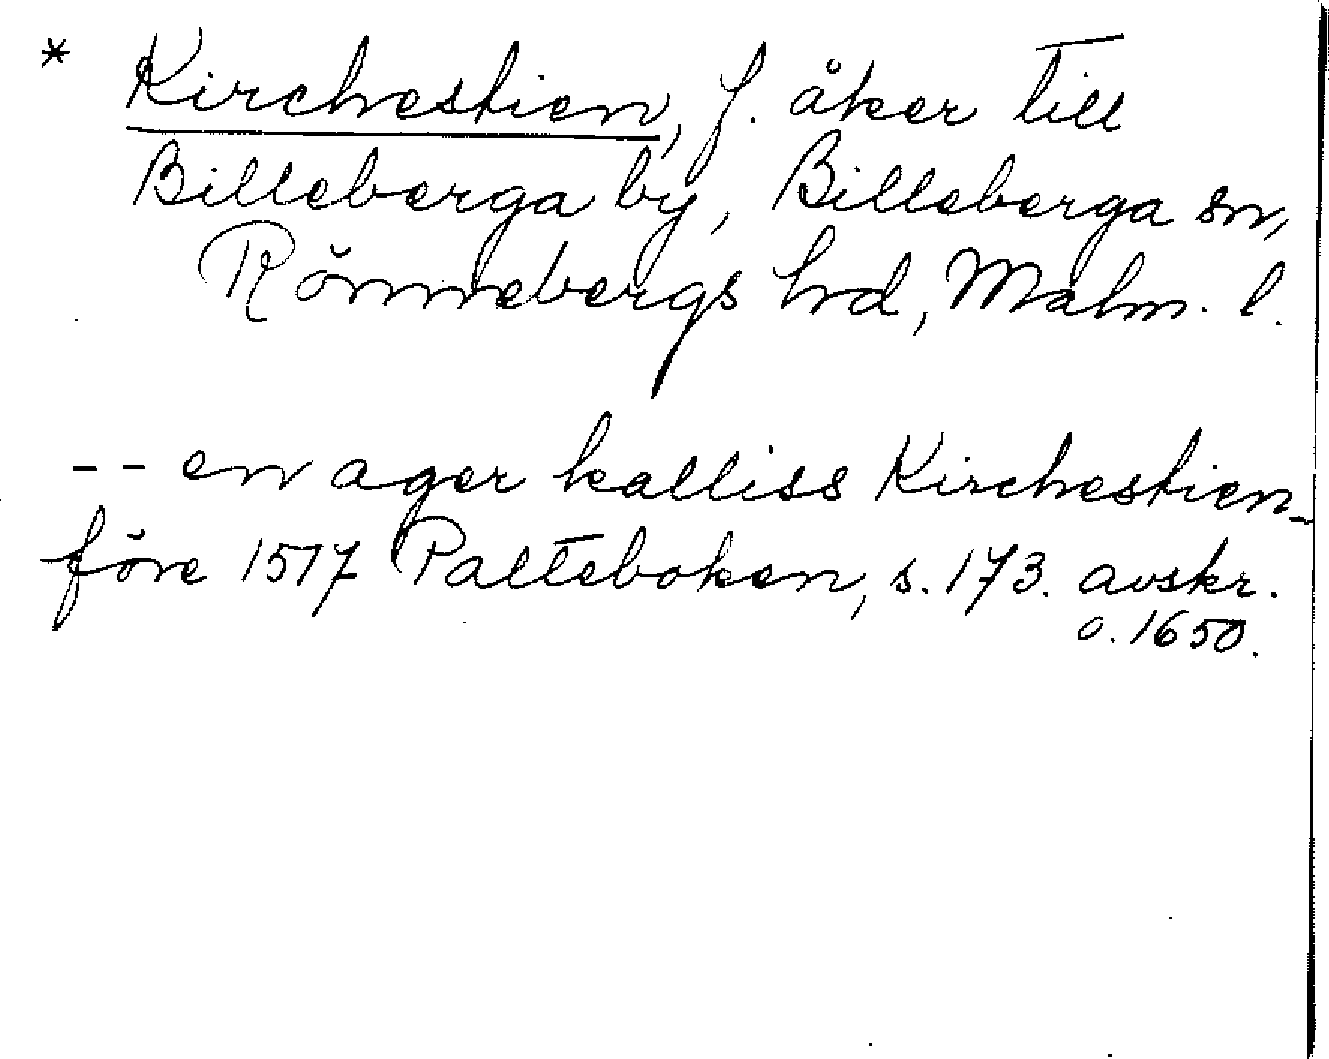 * Kirchestien, f. åker till
Billeberga by, Billeberga sn,
Rönnebergs hd, Malm. l.
-- en ager kalliss Kirchestien_
före 1517 Palteboken, s. 173. avskr.
o. 1650.